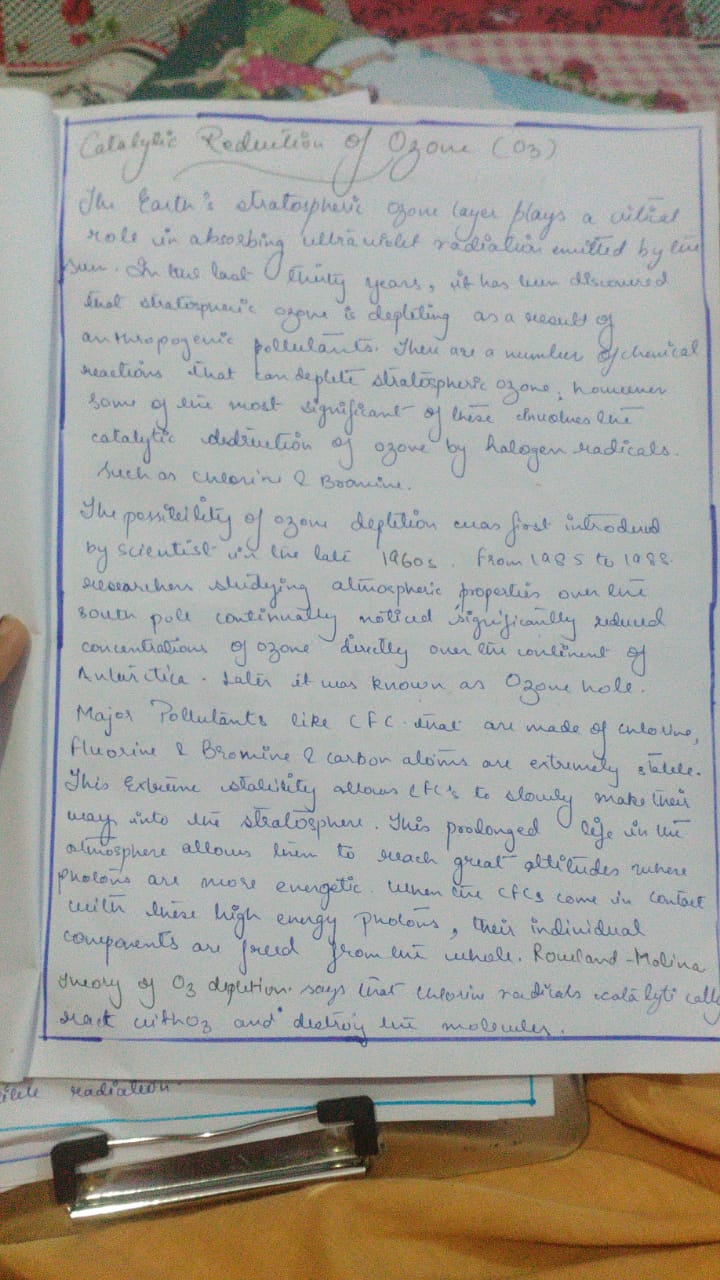 Catalytic Reduction of Ozone (O3)
The Earth's stratospheric ozone layer plays a critical
role in absorbing ultraviolet radiation emitted by the
sun. In the last thirty years, it has been discovered
that stratospheric ozone is depleting as a result of
anthropogenic pollutants. There are a number of chemical
reactions that can deplete stratospheric ozone; however
some of the most significant of these involves the
catalytic destruction of ozone by halogen radicals.
such as chlorine & Bromine.
The possibility of ozone depletion was first introduced
by scientist in the late 1960s. From 1985 to 1988.
researchers studying atmospheric properties over the
south pole continually noticed significantly reduced
concentrations of ozone directly over the continent of
Antarctica. Later it was known as Ozone hole.
Major Pollutants like CFC that are made of chlorine,
Fluorine & Bromine & carbon atoms are extremely stable.
This Extreme stability allows CFC's to slowly make their
way into the stratosphere. This prolonged life in the
atmosphere allows them to reach great altitudes where
photons are more energetic. When the CFCs come in contact
with these high energy photons, their individual
components are freed from the whole. Rowland-Molina
theory of O3 depletion. says that chlorine radicals catalytically
react with O3 and destroy the molecules.
radiation